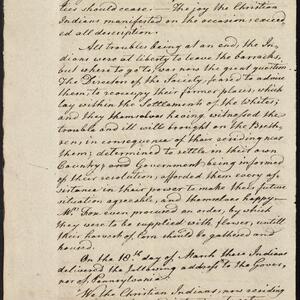 ties should cease. — The joy the Christian
Indians manifested on the occasion, exceed
ed all description.
All trouble being at an end, the In-
dians were at liberty to leave the barracks,
but where to go to, was the great question
The Directors of the Society, leaned to admit
them, to reoccupy their former places, which
lay within the Settlements of the Whites;
and they themselves having witnessed the
trouble and ill will brought on the Breth-
ren, in consequence of their residing near
them; determined to settle in their own
Country; and Government being informed
of their resolution, afforded them every as-
sistance in their power to make their future
situation agreeable, and themselves happy.
Mr. Fox even procured an order, by which
they were to be supplied with flour, until
their harvest of Corn should be gathered and
housed.
On the 18th day of March these Indians
delivered the following address to the Gover-
nor of Pennsylvania.
"We the Christian Indians, now residing